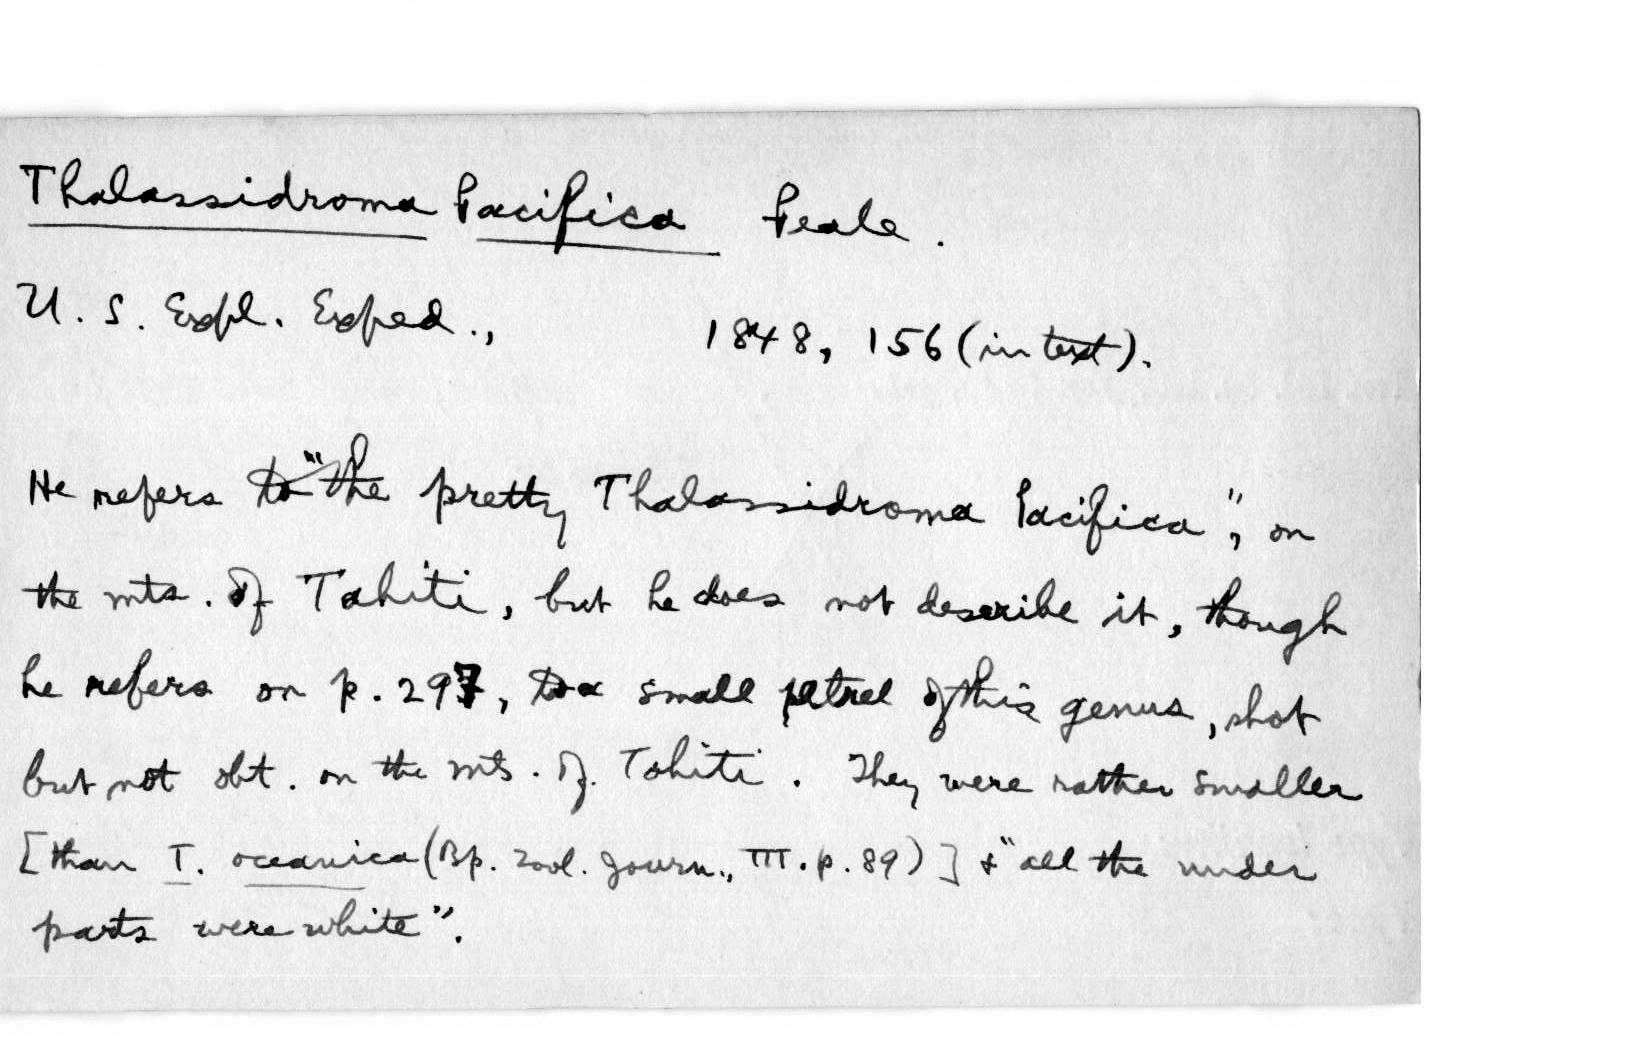 Thalassidroma Pacifica Peale.
U. S. Expl. Exped., 1848, 156 (in text).
He refers to "the pretty Thalassidroma Pacifica", on
the mts. of Tahiti, but he does not describe it, though
he refers on p. 297, to a small petrel of this genus, shot
but not obt. on the mts. of Tahiti. They were rather smaller
[than T. oceanica (Bp. Zool. Journ., III. p. 89)] & "all the under
parts were white".